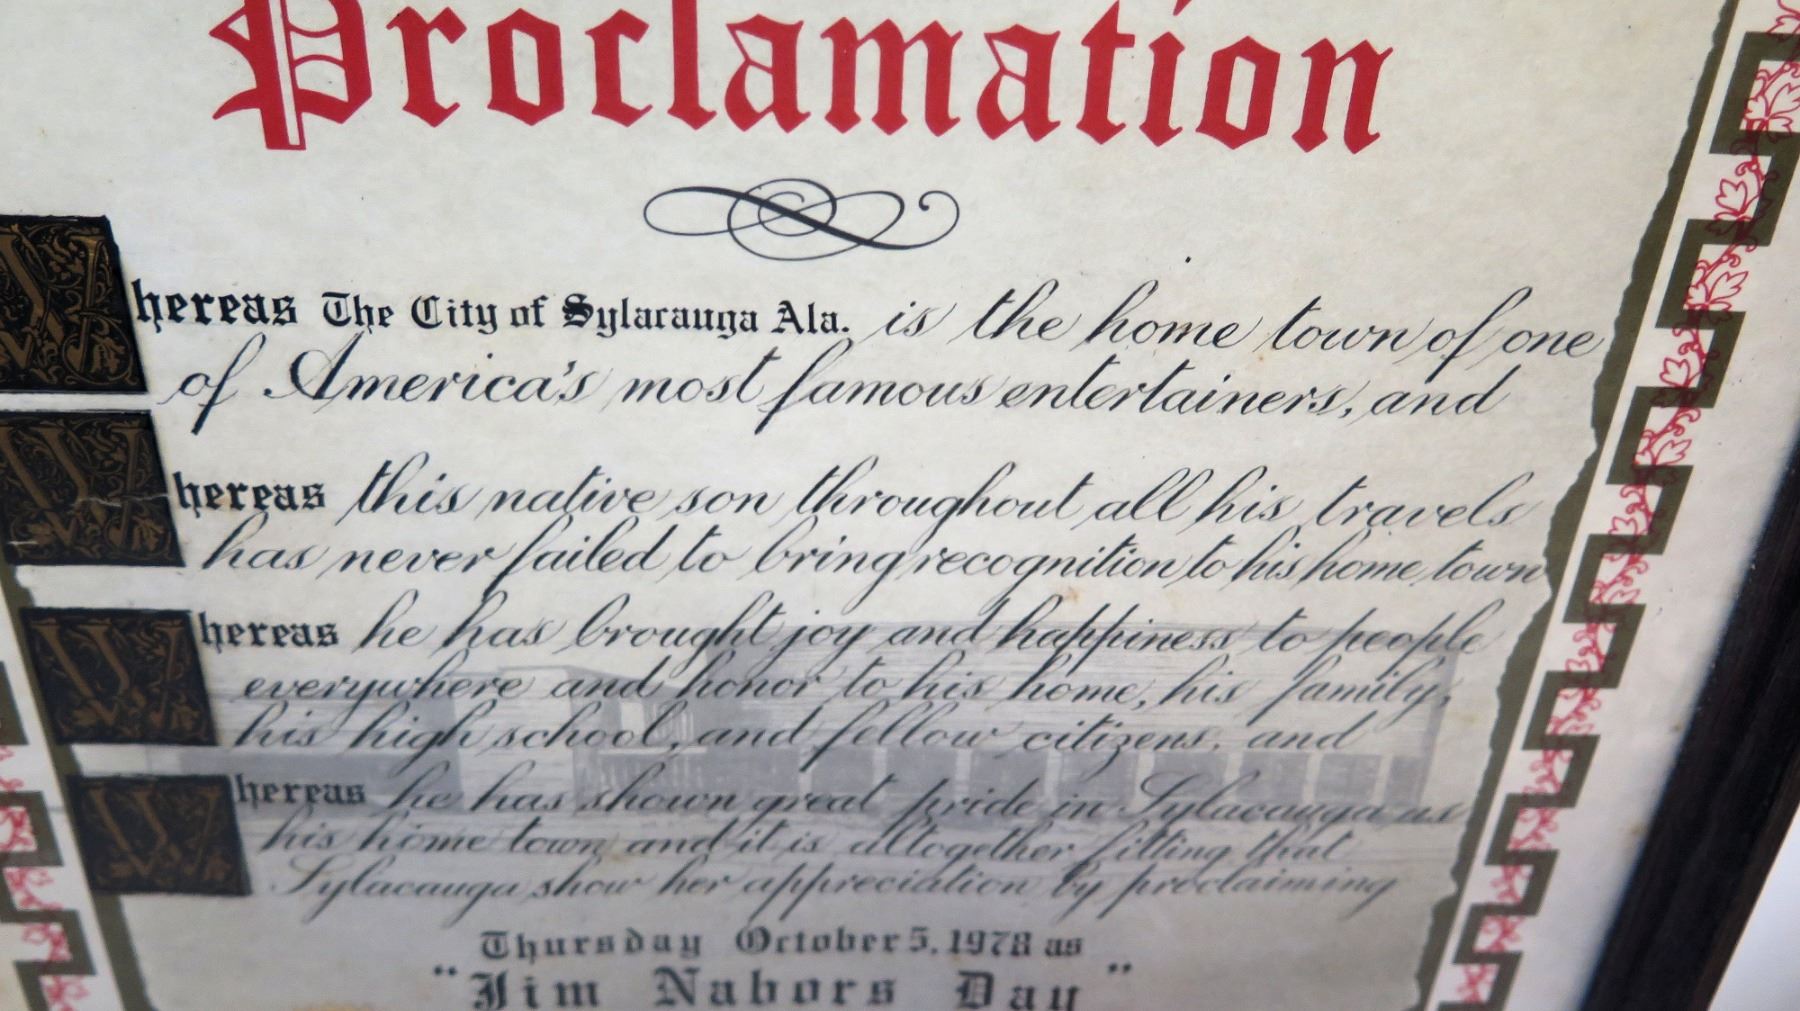 Proclamation
Whereas The City of Sylacauga Ala. is the home town of one
of America's most famous entertainers, and
Whereas this native son throughout all his travels
has never failed to bring recognition to his home town
Whereas he has brought joy and happiness to people
everywhere and honor to his home, his family,
his high school, and fellow citizens, and
Whereas he has shown great pride in Sylacauga as
his home town and it is altogether fitting that
Sylacauga show her appreciation by proclaiming
Thursday October 5, 1978 as
"Jim Nabors Day"